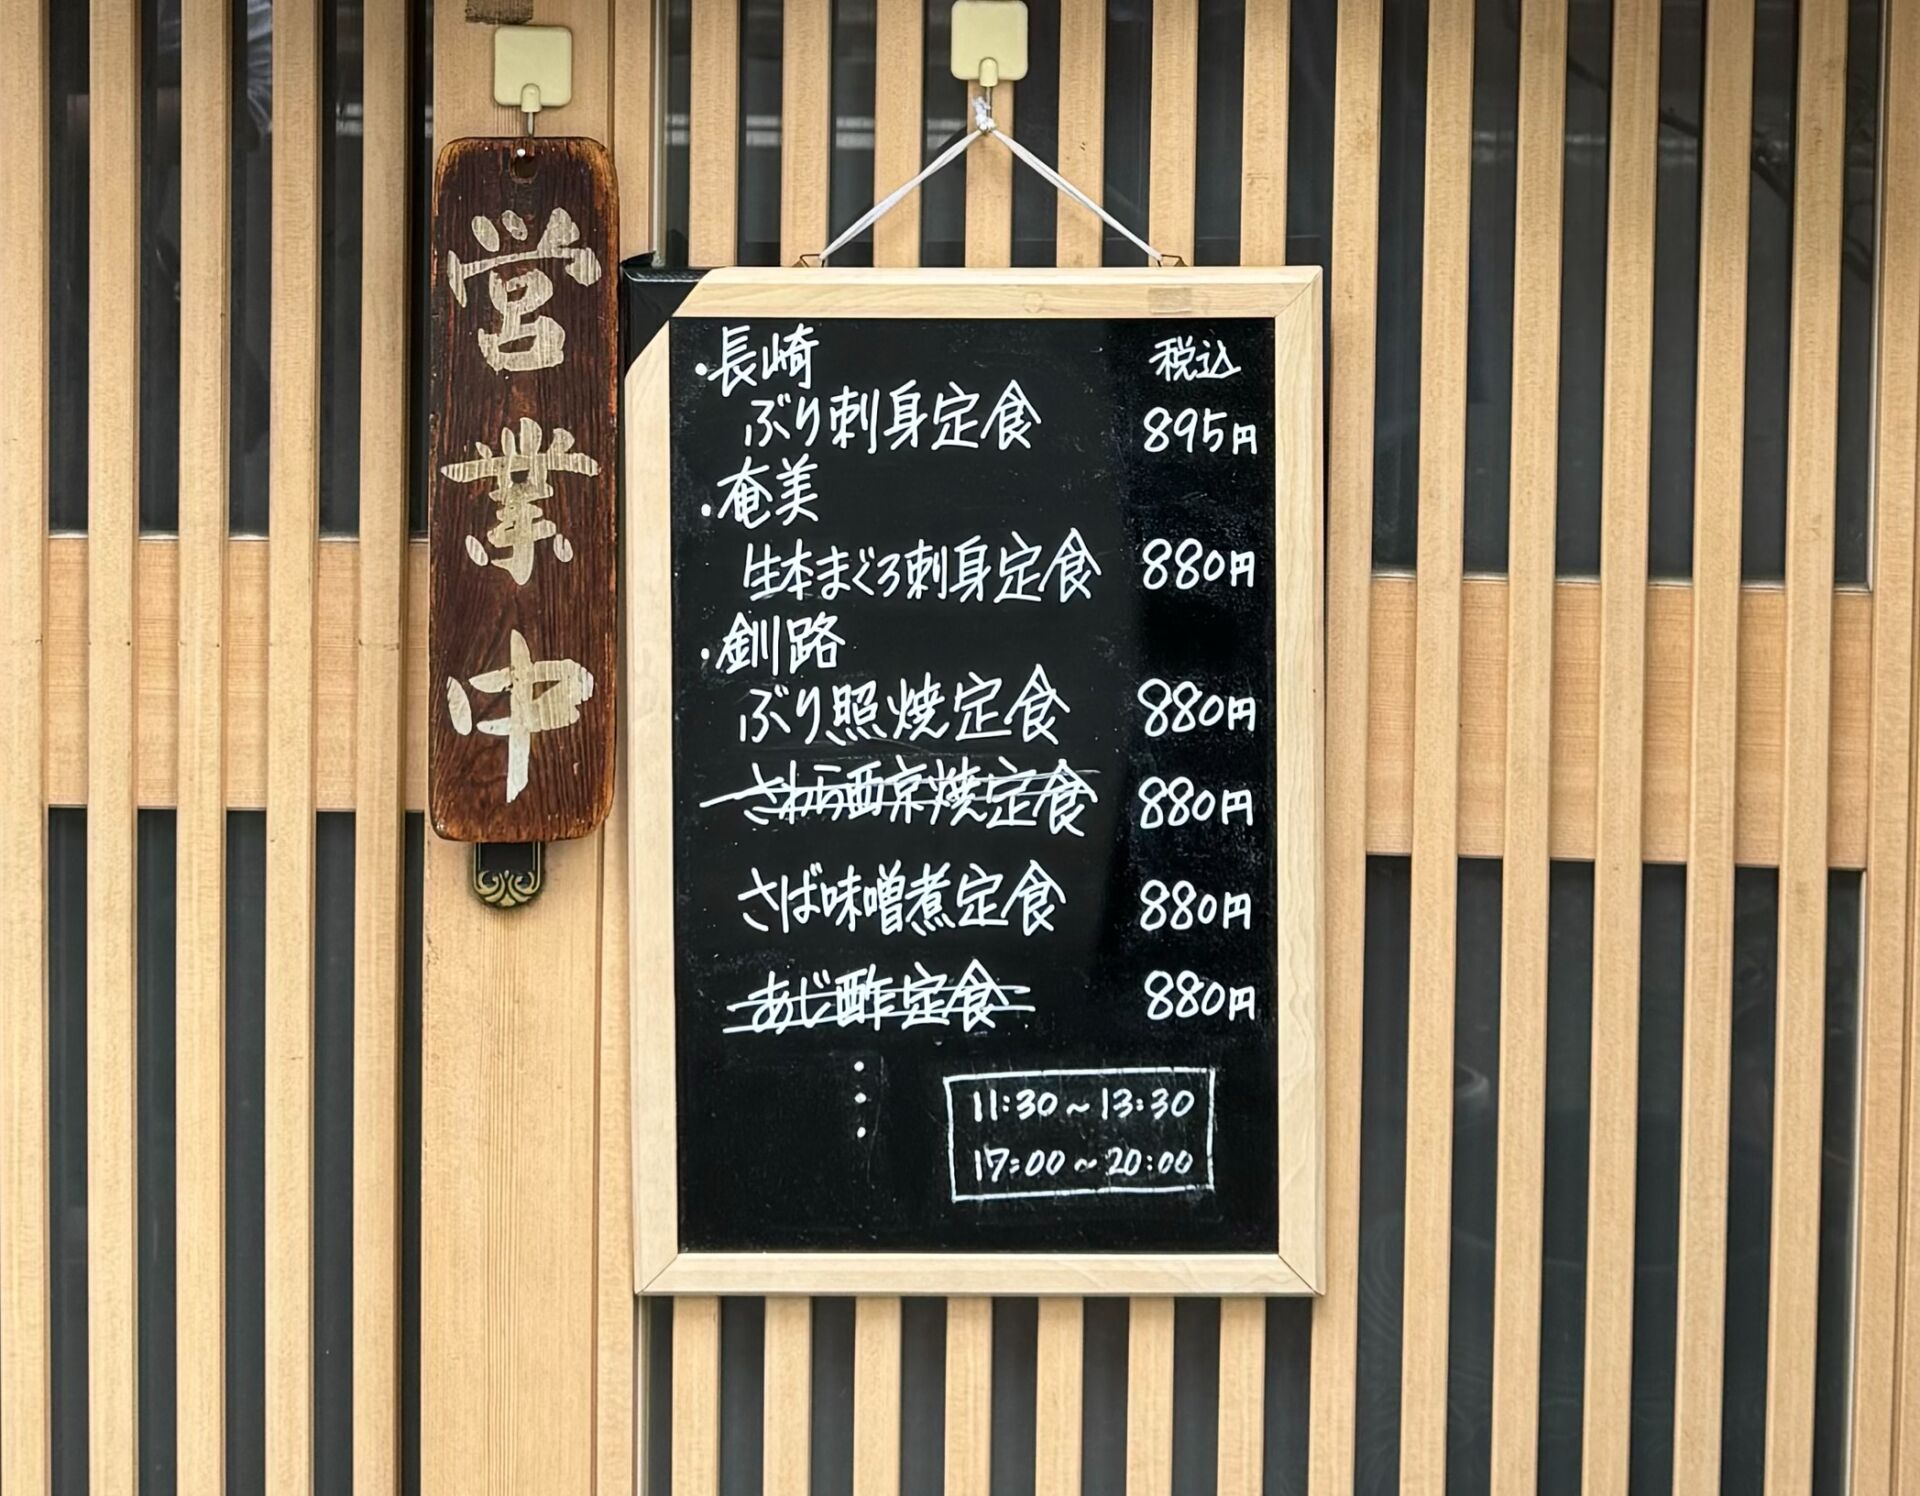 営業中
・長崎 税込
ぶり刺身定食 895円
・奄美
生本まぐろ刺身定食 880円
・釧路
ぶり照焼定食 880円
さわら西京焼定食 880円
さば味噌煮定食 880円
あじ酢定食 880円
11:30~13:30
17:00~20:00